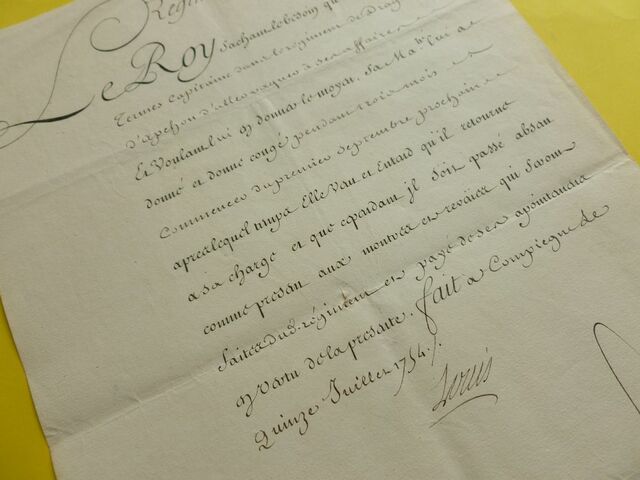 Regim
Le Roy sachant le besoin qu
Termes Capitaine dans le régiment de Drag
d'apchon d'aller vaquer à ses affaires
Et Voulant lui en donner le moyen, Sa Ma.té lui a
donné et donne congé pendant trois mois, et
Commencer du premier Septembre prochain
apres lequel temps Elle Veut et Entend qu'il retourne
a sa charge et que cependant jl Soit passé absan
comme presan aux montres et reveües qui Seront
faites dud. régiment et payé de ses apointemens
en Vertu de la presante. fait a Compiegne le
Quinze Juillet 1754.
Louis